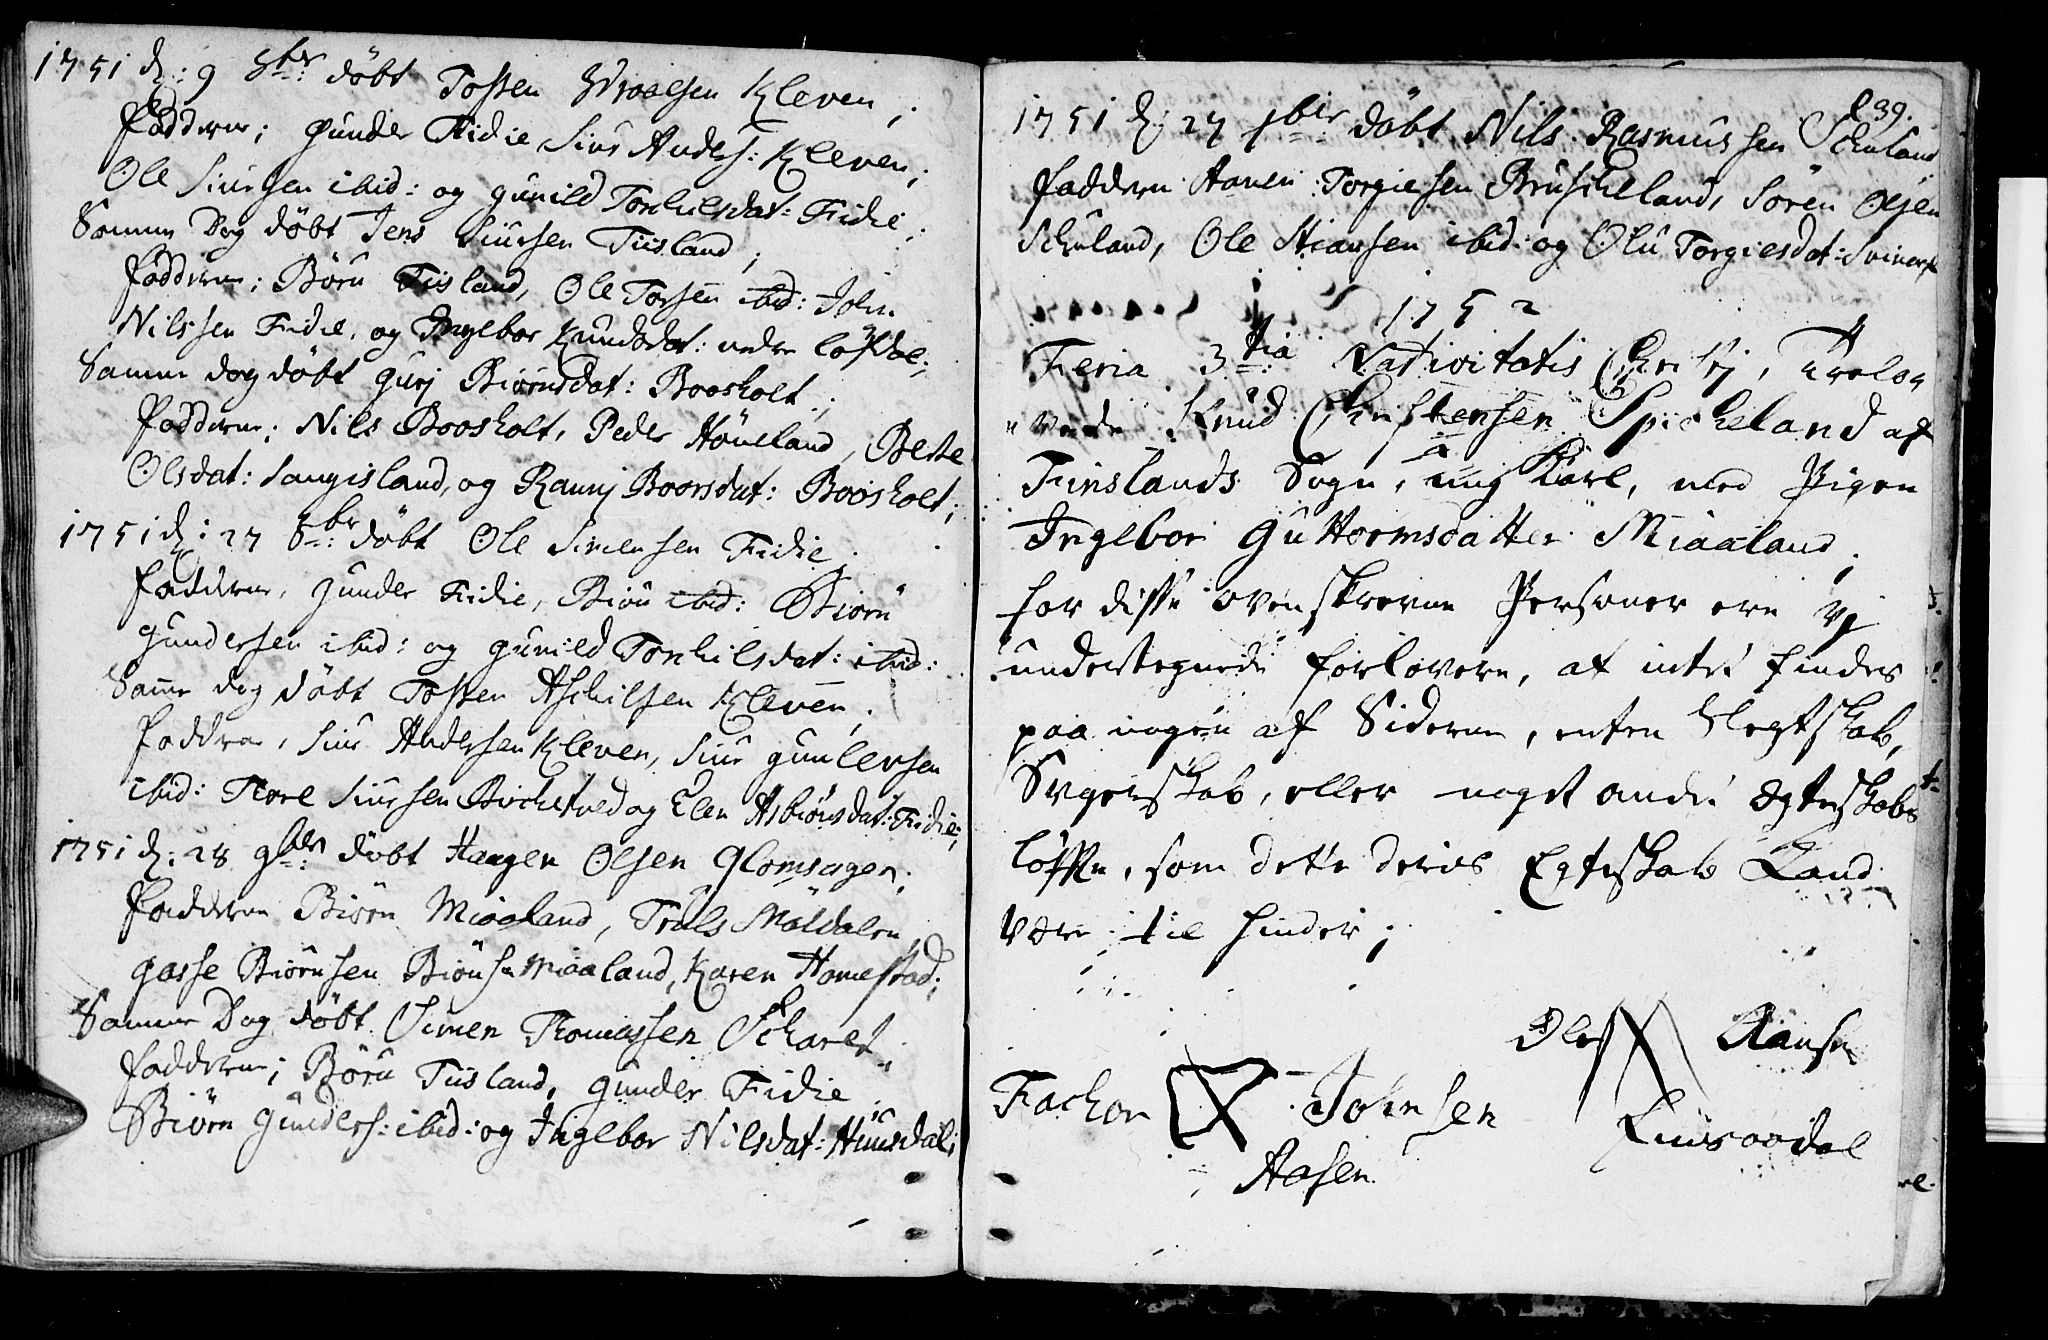 1751 d: 9 8br: döbt Tosten Wraalsen Kleven;
Faddrene; Gunder Fidie Siur Anders: Kleven;
Ole Siursen ibid: og Gunild Torkilsdat: Fidie;
Samme Dag döbt Jens Siursen Tiisland;
Faddrene; Börn Tisland, Ole Torsen ibid: John
Nilssen Fidie, og Ingebor Knudsdat: nedre
Samme dag döbt Gurj Biörnsdat: Boosholt;
Faddrene; Nils Boosholt, Peder Höneland, Berte
Olsdat: Laugisland, og Rannj Boorsdat: Boosholt;
1751 d: 27 8br: döbt Ole Simensen Fidie
Faddrene, Gunder Fidie, Biön ibid: Biörn
Gundersen ibid: og Gunild Torkilsdat: ibid:
Same dag döbt Tosten Aschilsen Kleven;
Faddrene, Siur Andersen Kleven, Siur Gunlersen
ibid: Tore Siursen Birketved og Elen Asbiönsdat: Fidie;
1751 d: 28 9br: döbt Haagen Olsen Glomsagen;
Faddrene Biörn Miaaland, Truls Moldalen,
Gasse Biörnsen Biönsn Miaaland, Karen Homestad;
Samme Dag döbt Simen Thomassen Scharet;
Faddrene; Börn Tiisland, Gunder Fidie
Biörn Gunders: ibid: og Ingebor Nilsdat: Huusdal;
239.
1751 d: 27 br döbt Nils Rasmussen Schuland
Faddrene Haven Torgiesen Bruskeland, Sören Olsen
Schuland, Ole Stiansen ibid: og Olu Torgiesdat:
1752
Feria 3tia Nativitatis Christj, Trolov
"vede Knud Christensen Spickeland af
Finslands Sogn, ung Karl, med Pigen
Ingebor Guttormsdatter Miaaland;
for disse ovenskrevne Personer ere vj
undertegnede forlovere, at intet findes
paa nogen af Siderne, enten Slegtskab,
Svogerskab, eller noget andet Ægteskabs
löffte, som dette deres Egteskab Kand
være til hinder;
Ole Aansn
Fachor Johnsen
Aasen